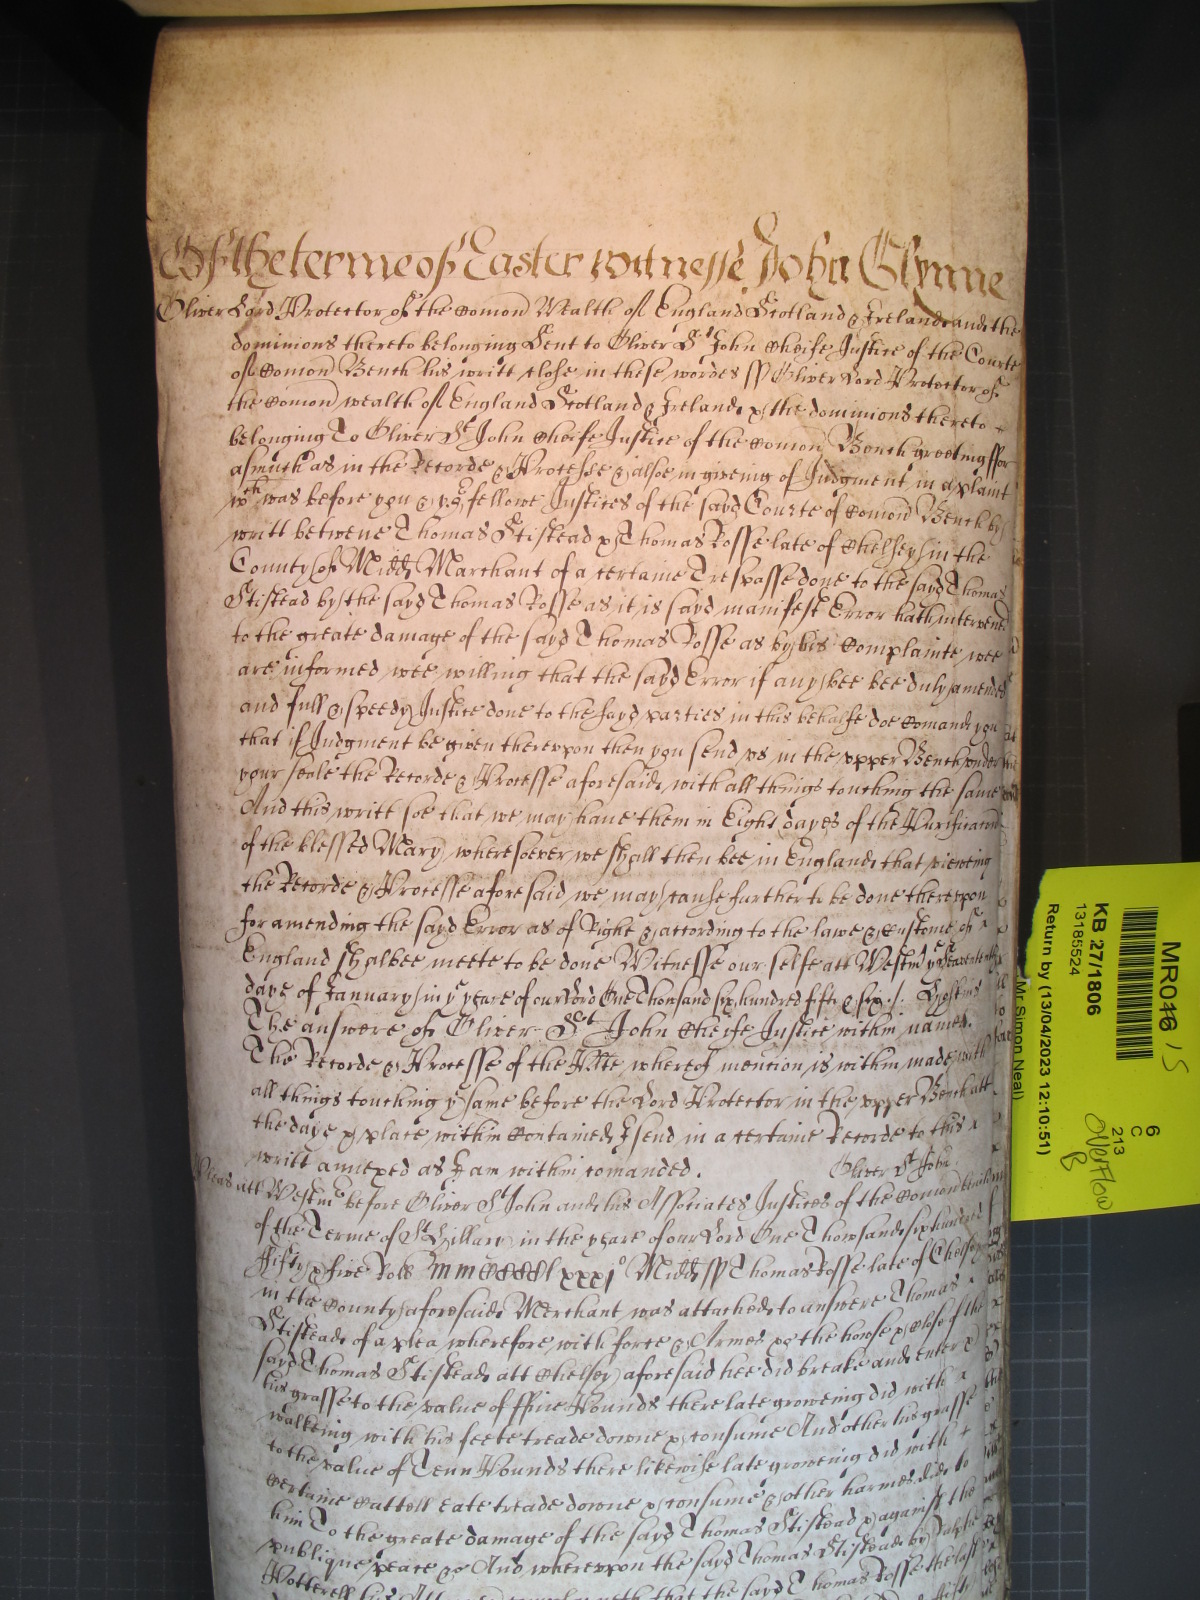 Of the terme of Easter witnesse John Glynne
Oliver Lord Protector of the Comon Wealth of England Scotland & Ireland and the
dominions thereto belonging Sent to Oliver St John Cheife Justice of the Courte
of Comon Bench his writt close in these wordes ss Oliver Lord Protector of
the Comon wealth of England Scotland & Ireland & the dominions thereto
belonging To Oliver St John Cheife Justice of the Comon Bench greeting ffor
asmuch as in the Recorde & Processe & alsoe in giveing of Judgment in a plaint
wch was before you & yor fellowe Justices of the sayd Courte of Comon Bench by
writt betwene Thomas Stistead & Thomas Rosse late of Chelsey in the
County of Midd Marchant of a certaine Trespasse done to the sayd Thomas
Stistead by the sayd Thomas Rosse as it is sayd manifest Error hath intervened
to the greate damage of the sayd Thomas Rosse as by his Complainte wee
are informed wee willing that the sayd Error if any bee bee duly amended
and full & speedy Justice done to the sayd parties in this behalfe doe Comand you
that if Judgment be given thereupon then you send us in the upper Bench under
your seale the Recorde & Processe aforesaid with all things touching the same
And this writt soe that we may have them in Eight dayes of the Purification
of the blessed Mary wheresoever we shall then bee in England that viewing
the Recorde & Processe aforesaid we may cause further to be done thereupon
for amending the sayd Error as of Right & according to the lawe & Custome of
England shalbee meete to be done Witnesse our selfe att Westmr ye
daye of January in ye yeare of our Lord One Thousand six hundred fifty & six
The answere of Oliver St John Cheife Justice within named.
The Recorde & Processe of the Plte whereof mention is within made with
all things touching ye same before the Lord Protector in the upper Bench att
the daye & place within Contained I send in a certaine Recorde to this
writt annexed as I am within comanded. Oliver St John
Pleas att Westmr before Oliver St John and his Associates Justices of the Comon Bench
of the Terme of St Hillary in the yeare of our Lord One Thowsand six hundred
fifty & five Roll Midd ss Thomas Rosse late of Chelsey
in the County aforesaid Merchant was attached to answere Thomas
Stistead of a plea wherefore with force & Armes &c the howse & Close of the
sayd Thomas Stistead att Chelsey aforesaid hee did breake and enter &
his grasse to the value of ffive Pounds there late groweing did with
walkeing with his feete treade downe & consume And other his grasse
to the value of Tenn Pounds there likewise late groweing did with
Certaine Cattell eate treade downe & consume & other harmes did to
him To the greate damage of the sayd Thomas Stistead & against the
publique peace &c And whereupon the sayd Thomas Stistead by
Potterell his that the sayd Thomas Rosse the last
MR046
6
C
213
Overflow
B
KB 27/1806
13185524
Return by (13/04/2023 12:10:51)
Mr Simon Neal)